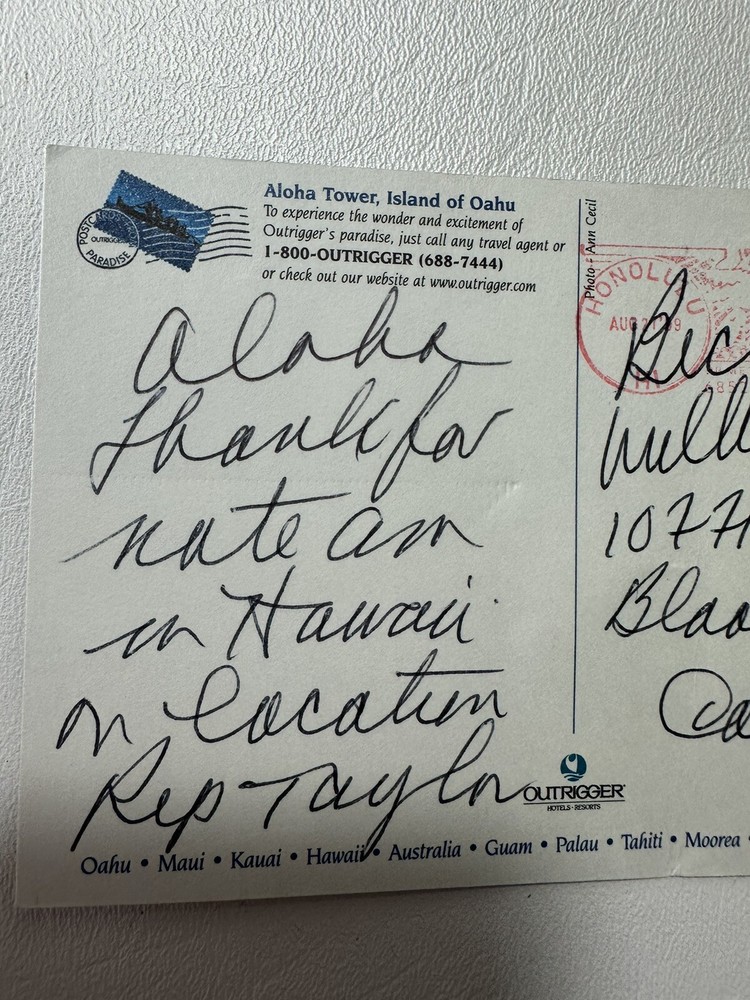 Aloha Tower, Island of Oahu
To experience the wonder and excitement of
Outrigger's paradise, just call any travel agent or
1-800-OUTRIGGER (688-7444)
or check out our website at www.outrigger.com
POSTCARDS FROM
OUTRIGGER
PARADISE
Aloha
Thank for
note am
in Hawaii
on location
Rip Taylor
Photo: Ann Cecil
HONOLULU
AUG 27 '99
HI
1077
Bloo
OUTRIGGER
HOTELS • RESORTS
Oahu • Maui • Kauai • Hawaii • Australia • Guam • Palau • Tahiti • Moorea •